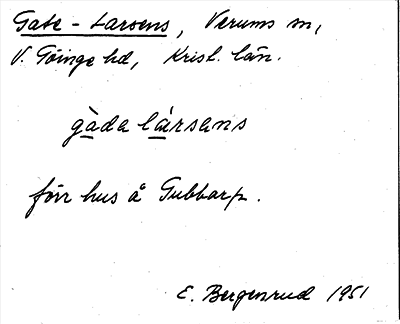 Gate-Larsens, Verums sn,
V. Göinge hd, Krist. län.
gàda lársens
förr hus å Gubbarp.
E. Bergenrud 1951